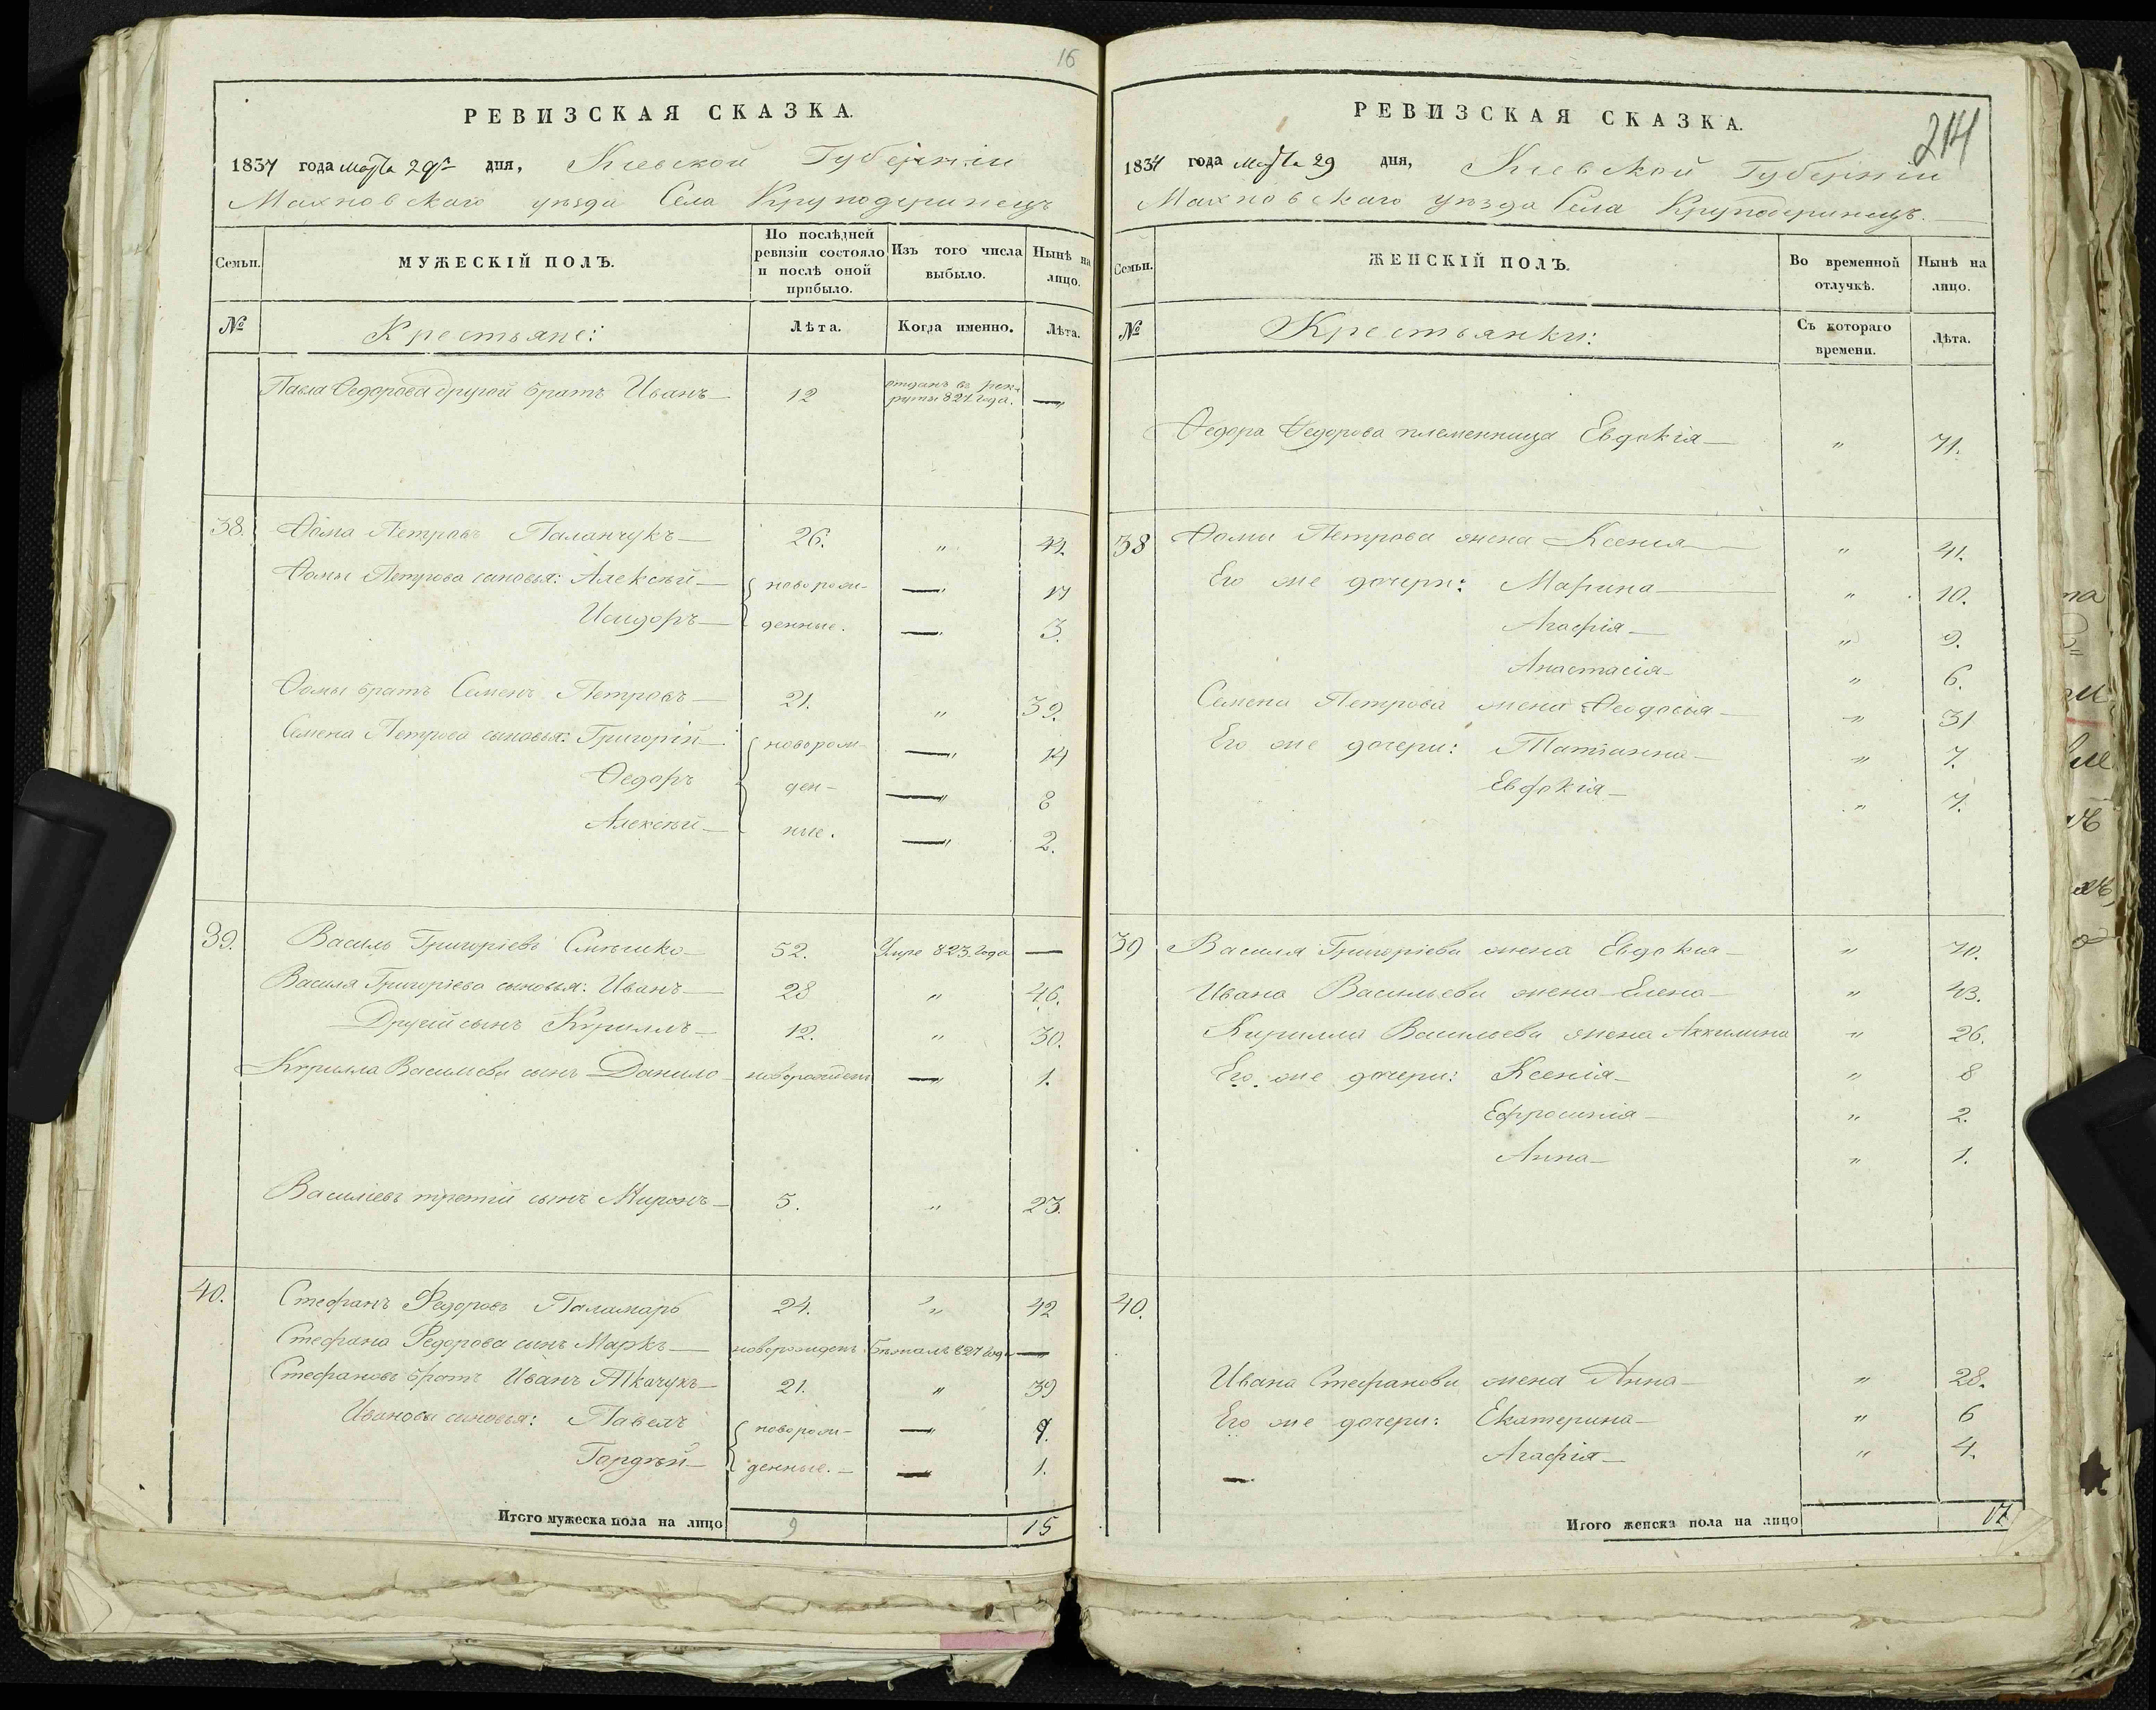 16
РЕВИЗСКАЯ СКАЗКА.
1834 года Марта 29го дня, Кіевской Губерніи
Махновскаго уѣзда Села Круподеринецъ
Семьи. МУЖЕСКІЙ ПОЛЪ. По послѣдней ревизіи состояло и послѣ оной прибыло. Изъ того числа выбыло. Нынѣ на лицо.
№ Крестьяне: Лѣта. Когда именно. Лѣта.
Павла Федорова другой братъ Иванъ 12 отданъ въ рекруты 821 года. —
38. Фома Петровъ Паланчукъ 26. " 44.
Фомы Петрова сыновья: Алексѣй новорож- — 17
Исидоръ денные. — 3.
Фомы братъ Семенъ Петровъ 21. " 39.
Семена Петрова сыновья: Григорій новорож- — 14
Федоръ ден- — 8
Алексѣй ные. — 2.
39. Василь Григоріевъ 52. Умре 823 года —
Василя Григоріева сыновья: Иванъ 28 " 46.
Другій сынъ Кириллъ 12. " 30.
Кирилла Василиева сынъ Данило новорожденъ — 1.
Василіевъ третій сынъ Миронъ 5. " 23.
40. Стефанъ Федоровъ Паламарь 24. " 42
Стефана Федорова сынъ Маркъ новорожденъ Бѣжалъ 827 года —
Стефановъ братъ Иванъ Ткачукъ 21. " 39
Ивановы сыновья: Павелъ новорож- — 9.
Гордѣй денные. — 1.
Итого мужеска пола на лицо 9 15
214
РЕВИЗСКАЯ СКАЗКА.
1834 года Марта 29 дня, Кіевской Губерніи
Махновскаго уѣзда Села Круподеринецъ.
Семьи. ЖЕНСКІЙ ПОЛЪ. Во временной отлучкѣ. Нынѣ на лицо.
№ Крестьянки: Съ котораго времени. Лѣта.
Федора Федорова племенница Евдокія " 71.
38 Фомы Петрова жена Ксенія " 41.
Его же дочери: Марина " 10.
Агафія " 9.
Анастасія " 6.
Семена Петрова жена Феодосья " 31
Его же дочери: Татіанна " 7.
Евдокія " 7.
39 Василя Григоріева жена Евдокія " 70.
Ивана Васильева жена Елена " 43.
Кирилла Васильева жена Аккилина " 26.
Его же дочери: Ксенія " 8
Ефросинія " 2.
Анна " 1.
40.
Ивана Стефанова жена Анна " 28.
Его же дочери: Екатерина " 6
Агафія " 4.
Итого женска пола на лицо 17